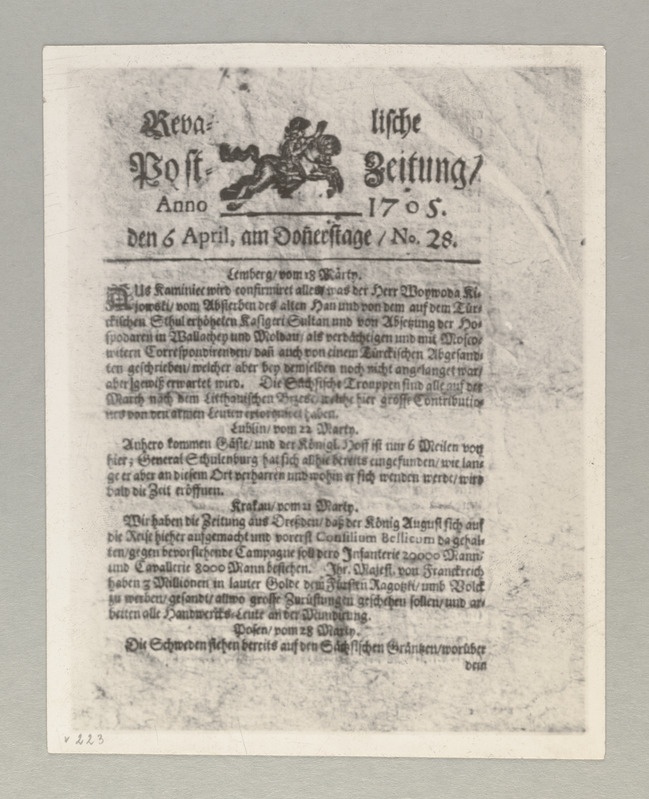 Reva- lische
Post- Zeitung/
Anno 1705.
den 6 April, am Doñerstage / No. 28.
Lemberg/ vom 18 Marty.
AUs Kaminiec wird confirmiret alles/ was der Herr Woywoda Ki-
jowski/ vom Absterben des alten Han und von dem auf dem Tür-
ckischen Sthul erhöheten Kasigeri Sultan und von Absetzung der Ho-
spodaren in Wallachey und Moldau/ als verdächtigen und mit Mosco-
witern Correspondirenden/ daß auch von einem Türckischen Abgesand-
ten geschrieben/ welcher aber bey demselben noch nicht angelanget war/
aber gewiß erwartet wird. Die Sächsische Trouppen sind alle auf der
March nach dem Litthauischen welche hier grosse Contributio-
nes von den armen Leuten haben.
Lublin/ vom 22 Marty.
Anhero kommen Gäste/ und der Königl. Hoff ist nur 6 Meilen von
hier; General Schulenburg hat sich allhie bereits eingefunden/ wie lan-
ge er aber an diesem Ort verharren und wohin er sich wenden werde/ wird
bald die Zeit eröffnen.
Krakau/ vom 21 Marty.
Wir haben die Zeitung aus Dreßden/ daß der König August sich auf
die Reise hieher aufgemacht und vorerst Consilium Bellicum da gehal-
ten/ gegen bevorstehende Campagne soll dero Infanterie 20000 Mann/
und Cavallerie 8000 Mann bestehen. Ihr. Majest. von Franckreich
haben 3 Millionen in lauter Golde dem Fürsten Ragotzki/ umb Volck
zu werben/ gesandt/ allwo grosse Zurüstungen geschehen sollen/ und ar-
beiten alle Handwercks-Leute an der Mundirung.
Posen/ vom 28 Marty.
Die Schweden stehen bereits auf den Sächsischen Gräntzen/ worüber
dem
v 223